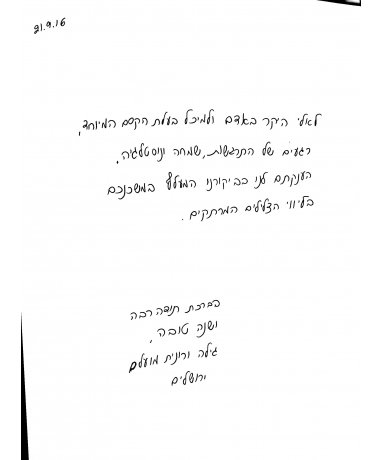 21.9.16
לאלי היקר באדם ולמיכל בעלת הקסם המיוחד,
רגעים של התרגשות, שמחה ונוסטלגיה.
הענקתם לנו בביקורנו המעלף במשכנכם
בליווי הצלילים המרתקים.
בברכת תודה רבה
ושנה טובה,
גילה ורונית מועלם
ירושלים